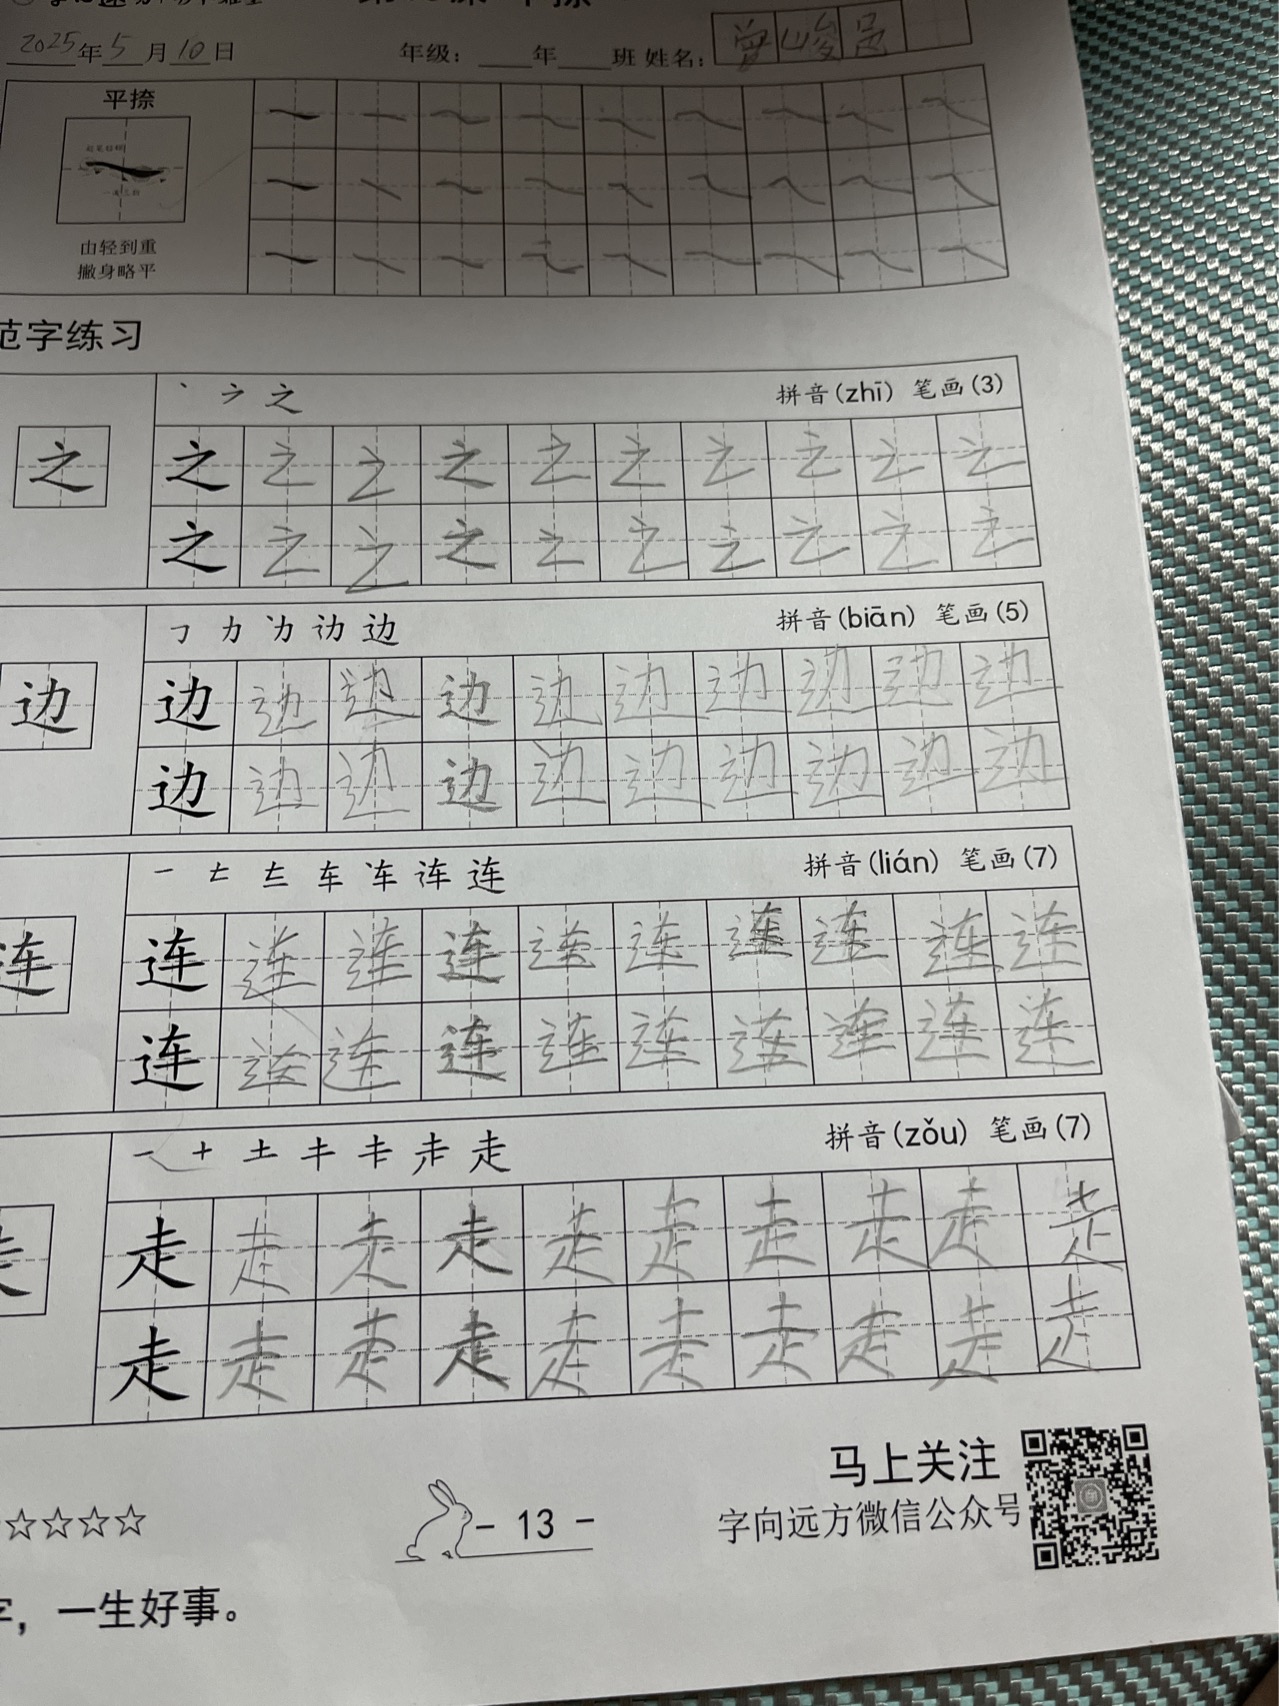 2025年5月10日 年级：____年____班 姓名：曾峻
平捺
由轻到重
撇身略平
范字练习
丶 ㇇ 之 拼音(zhī) 笔画(3)
之 之 之 之 之 之 之 之 之 之 之
之 之 之 之 之 之 之 之 之 之
㇆ 力 边 拼音(biān) 笔画(5)
边 边 边 边 边 边 边 边 边 边 边
边 边 边 边 边 边 边 边 边 边
一 车 连 连 拼音(lián) 笔画(7)
连 连 连 连 连 连 连 连 连 连 连
连 连 连 连 连 连 连 连 连 连
一 十 土 走 拼音(zǒu) 笔画(7)
走 走 走 走 走 走 走 走 走 走 走
走 走 走 走 走 走 走 走 走 走
马上关注
☆☆☆☆ - 13 - 字向远方微信公众号
字，一生好事。